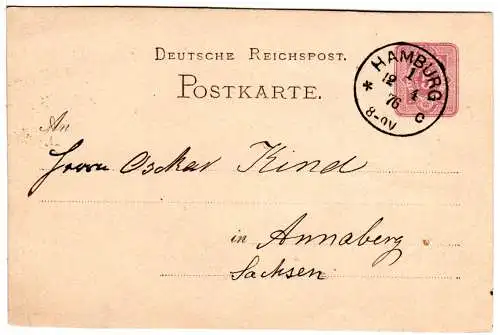 DEUTSCHE REICHSPOST.
POSTKARTE.
HAMBURG
1
12 4
76
* C
8-9V
An
Herrn Oskar Kind
in Annaberg
Sachsen